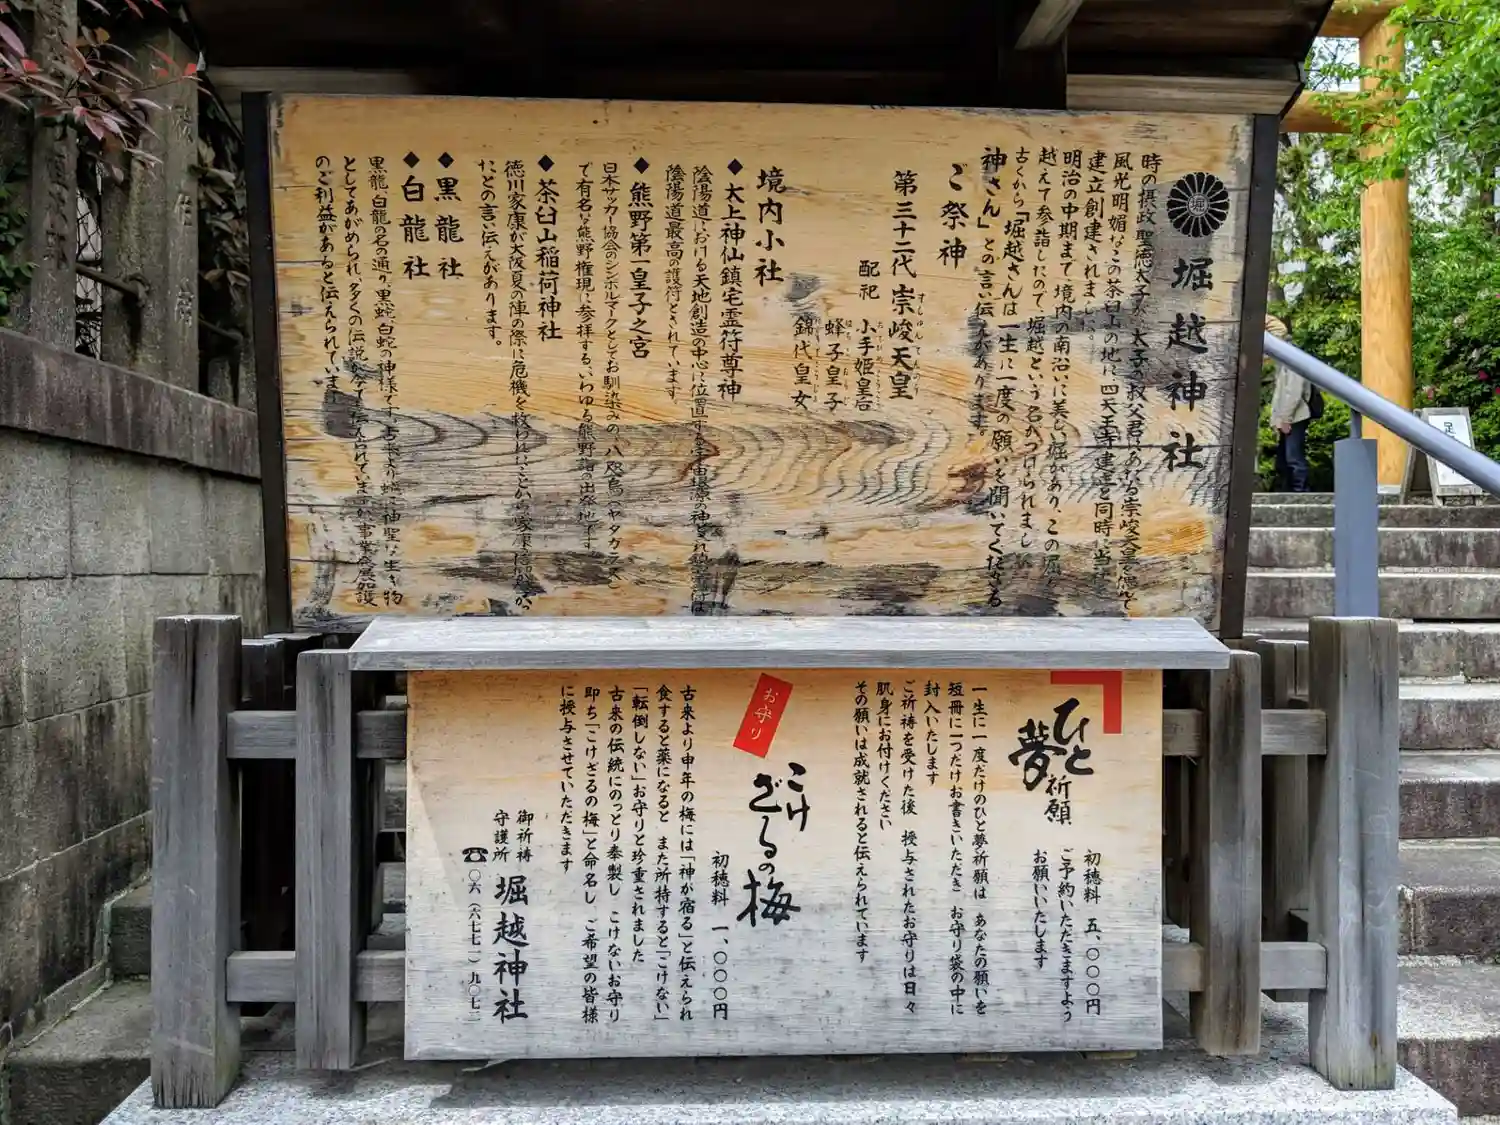 堀越神社
時の摂政聖徳太子が、太子の叔父君である崇峻天皇を偲んで
風光明媚なこの茶臼山の地に四天王寺建立と同時に当社を
建立創建されました。
明治の中期まで境内の南沿いに美しい堀があり、この堀を
越えて参詣したので、堀越という名がつけられました。
古くから「堀越さんは一生に一度の願いを聞いてくださる
神さん」との言い伝えがあります。
ご祭神
第三十二代 崇峻天皇
すしゅんてんのう
配祀 小手姫皇后
蜂子皇子
錦代皇女
境内小社
◆太上神仙鎮宅霊符尊神
陰陽道における天地創造の中心に位置する宇宙根源の神
陰陽道最高の護符とされています。
◆熊野第一皇子之宮
日本サッカー協会のシンボルマークとしてお馴染みの、八咫烏(ヤタガラス)
で有名な熊野権現に参拝する、いわゆる熊野詣の出発地です。
◆茶臼山稲荷神社
徳川家康が大阪夏の陣の際に危機を救われたことから家康
たとの言い伝えがあります。
◆黒龍社
◆白龍社
黒龍、白龍の名の通り、黒蛇、白蛇の神様です。古来より蛇は神聖な生き物
としてあがめられ、多くの伝説が今でも伝えられていますが、事業金運加護
のご利益があると伝えられています。
ひと夢祈願
初穂料 五、〇〇〇円
ご予約いただきますよう
お願いいたします
一生に一度だけのひと夢祈願は あなたの願いを
短冊に一つだけお書きいただき お守り袋の中に
封入いたします
ご祈祷を受けた後 授与されたお守りは日々
肌身にお付けください
その願いは成就されると伝えられています
お守り
こけざるの梅
初穂料 一、〇〇〇円
古来より申年の梅には「神が宿る」と伝えられ
食すると薬になると また所持すると「こけない」
「転倒しない」お守りと珍重されました
古来の伝統にのっとり奉製し こけないお守り
即ち「こけざるの梅」と命名し ご希望の皆様
に授与させていただきます
御祈祷
守護所
堀越神社
☎〇六(六七七一)九〇七二